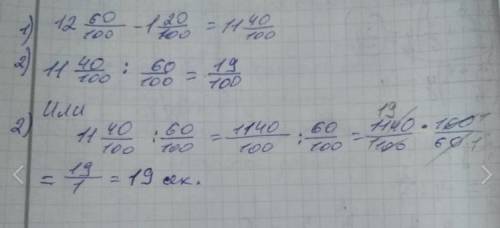 1) 12 60/100 - 1 20/100 = 11 40/100
2) 11 40/100 : 60/100 = 19/100
Или
2) 11 40/100 : 60/100 = 1140/100 : 60/100 = 19 1140/1100 * 100 1/60 1
= 19/1 = 19 ак.